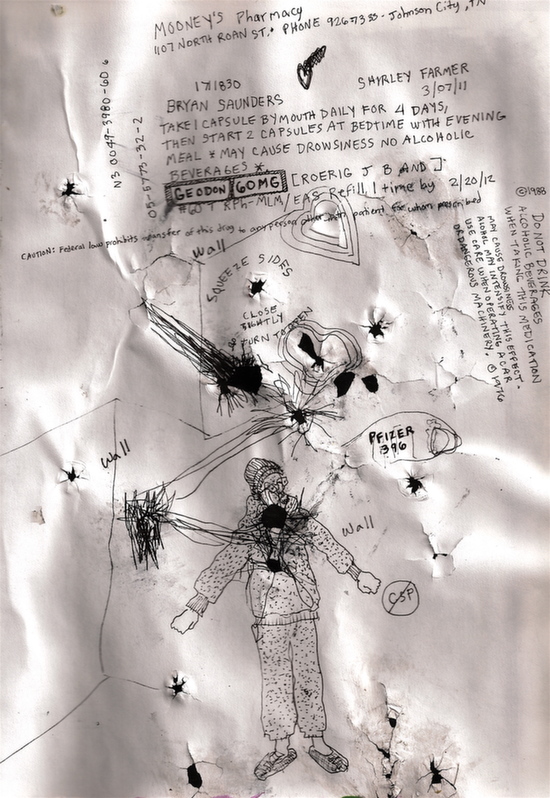 MOONEY'S PHARMACY
1107 NORTH ROAN ST. PHONE 9267333 - JOHNSON CITY, TN
171830
SHIRLEY FARMER
BRYAN SAUNDERS
3/07/11
TAKE 1 CAPSULE BY MOUTH DAILY FOR 4 DAYS,
THEN START 2 CAPSULES AT BEDTIME WITH EVENING
MEAL * MAY CAUSE DROWSINESS NO ALCOHOLIC
BEVERAGES *
GEODON 60MG [ROERIG J B AND]
#60 1 RPh-MLM/EAS Refill 1 time by 2/20/12
CAUTION: Federal law prohibits transfer of this drug to any person other than patient for whom prescribed
N3 0049-3980-60 6
05-5773-32-2
©1988
DO NOT DRINK
ALCOHOLIC BEVERAGES
WHEN TAKING THIS MEDICATION
MAY CAUSE DROWSINESS
ALCOHOL MAY INTENSIFY THIS EFFECT.
USE CARE WHEN OPERATING A CAR
OR DANGEROUS MACHINERY. ©1976
Wall
SQUEEZE SIDES
CLOSE
TIGHTLY
TURN TO OPEN
PFIZER
396
Wall
Wall
CSP